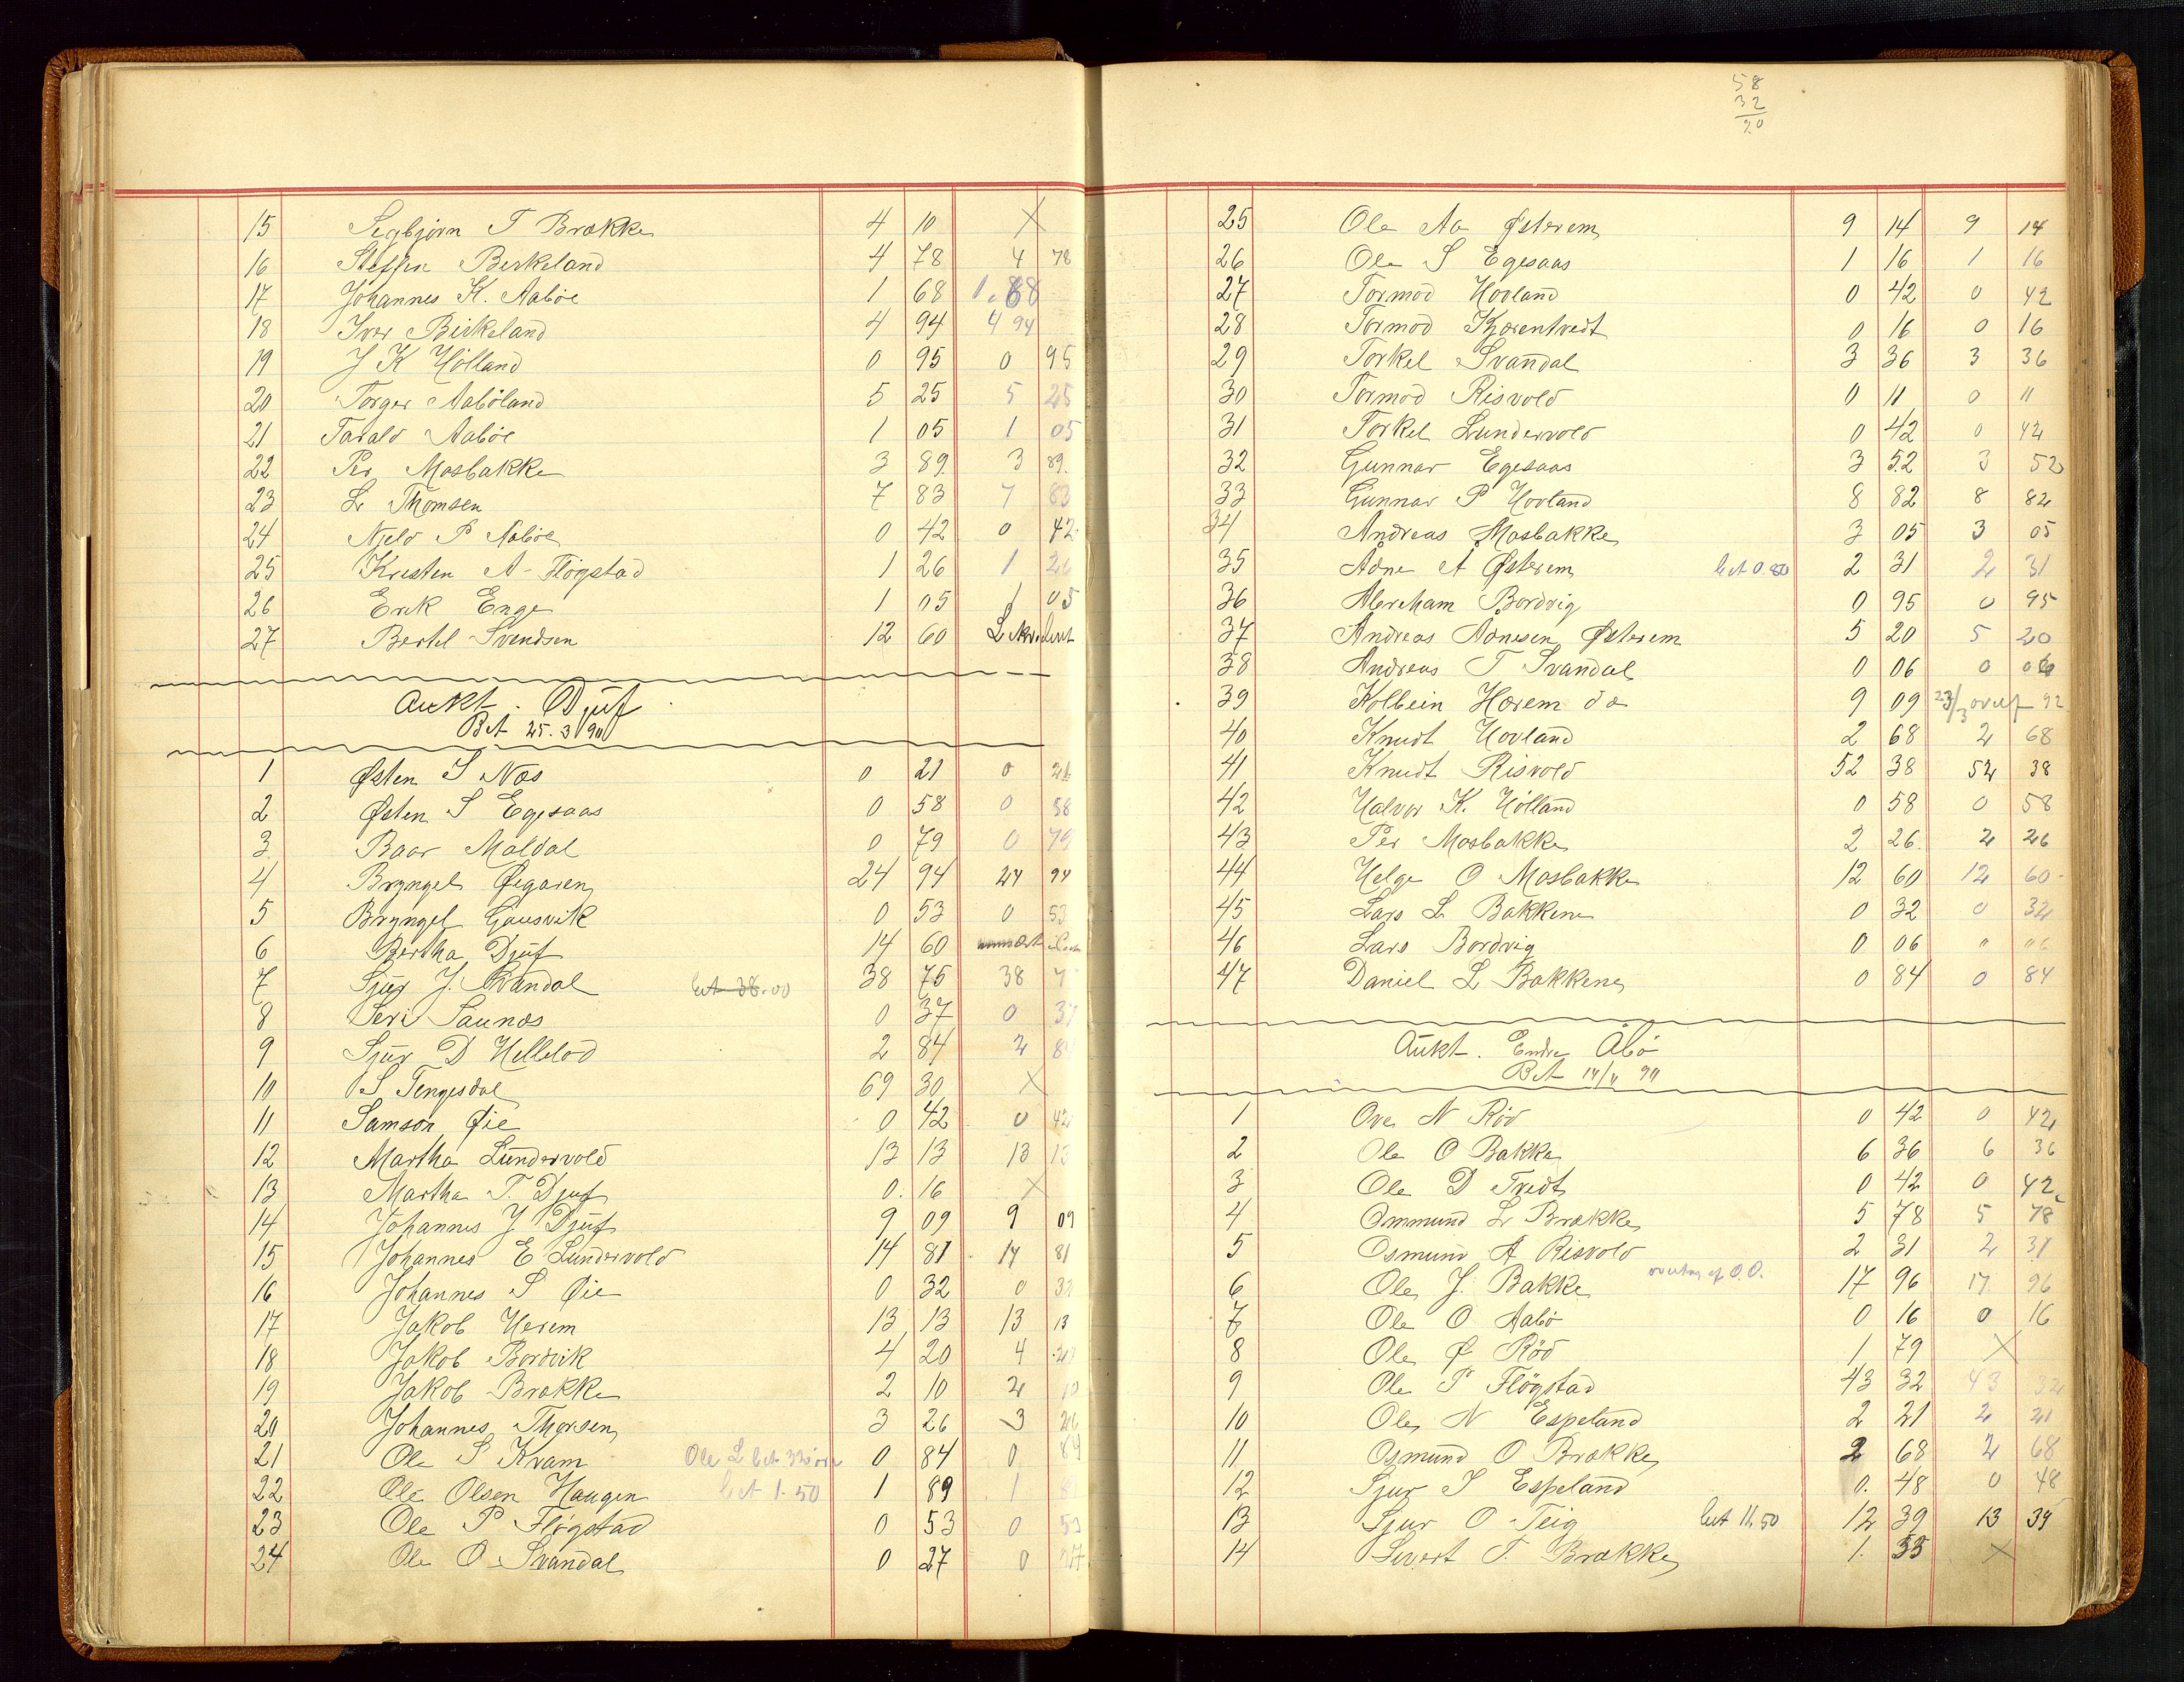 15 Segbjørn T Brakke 4 10 X
16 Steffen Berkeland 4 78 4 78
17 Johannes K. Aabøe 1 68 1.68
18 Iver Birkeland 4 94 4 94
19 J K Hölland 0 95 0 95
20 Torger Aabøland 5 25 5 25
21 Tarald Aabøe 1 05 1 05
22 Per Mosbakke 3 89 3 89.
23 L Thomsen 7 83 7 83
24 Njeld P Aabøe 0 42 0 42
25 Kristen A Fløgstad 1 26 1 26
26 Erik Enge 1 05 1 05
27 Bertel Svendsen 12 60
Aukt. Djuf
Bet 25.3 90
1 Østen S Næs 0 21 0 21
2 Østen S Egesaas 0 58 0 58
3 Baar Maldal 0 79 0 79
4 Bryngel Øegaren 24 94 24 94
5 Bryngel Gausvik 0 53 0 53
6 Bertha Djuf 14 60
7 Sjur J. Svandal bet 38.00 38 75 38 7
8 Seri Saunæs 0 37 0 37
9 Sjur D Hellelod 2 84 2 84
10 S Tengesdal 69 30 X
11 Samson Øie 0 42 0 42
12 Martha Lundervold 13 13 13 13
13 Martha T. Djuf 0. 16 X
14 Johannes J Djuf 9 09 9 09
15 Johannes E Lundervold 14 81 14 81
16 Johannes S Øie 0 32 0 32
17 Jakob Herem 13 13 13 13
18 Jakob Bordvik 4 20 4 20
19 Jakob Brakke 2 10 2 10
20 Johannes Thorsen 3 26 3 26
21 Ole S Kvam Ole L bet 33 øre 0 84 0 84
22 Ole Olsen Haugen bet 1.50 1 89 1 8
23 Ole P Fløgstad 0 53 0 53
24 Ole O Svandal 0 27 0 27
58
32
90
25 Ole Aa Østerem 9 14 9 14
26 Ole S Egesaas 1 16 1 16
27 Tormod Hovland 0 42 0 42
28 Tormod Kjorentvedt 0 16 0 16
29 Torkel Svandal 3 36 3 36
30 Tormod Risvold 0 11 0 11
31 Torkel Lundervold 0 42 0 42
32 Gunnar Egesaas 3 52 3 52
33 Gunnar P Hovland 8 82 8 82
34 Andreas Mosbakke 3 05 3 05
35 Adne A Østerem bet 0.80 2 31 2 31
36 Abreham Bordvig 0 95 0 95
37 Andreas Adnesen Østerem 5 20 5 20
38 Andreas T Svandal 0 06 0 06
39 Kolbein Horem do 9 09 23/3 92
40 Knudt Hovland 2 68 2 68
41 Knudt Risvold 52 38 52 38
42 Halvor K. Hölland 0 58 0 58
43 Per Mosbakke 2 26. 2 26
44 Helge O Mosbakke 12 60 12 60
45 Lars L Bakkene 0 32 0 32
46 Lars Bordvig 0 06 0 06
47 Daniel L Bakkene 0 84 0 84
Aukt. Endre Åbø
Bet 14/4 90
1 Ove N Röd 0 42 0 42
2 Ole O Bakke 6 36 6 36
3 Ole D Tvedt 0 42 0 42
4 Ommund L Brakke 5 78 5 78
5 Osmund A Risvold 2 31 2 31
6 Ole J. Bakke overtag af O.O. 17 96 17 96
7 Ole O Aabö 0 16 0 16
8 Ole Ø Röd 1 79 X
9 Ole P Flögstad 43 32 43 32
10 Ole N Espeland 2 21 2 21
11 Osmund O Brakke 2 68 2 68
12 Sjur S Espeland 0. 48 0 48
13 Sjur O Teig bet 11.50 12 39 13 39
14 Sivert T. Brakke 1. 35 X